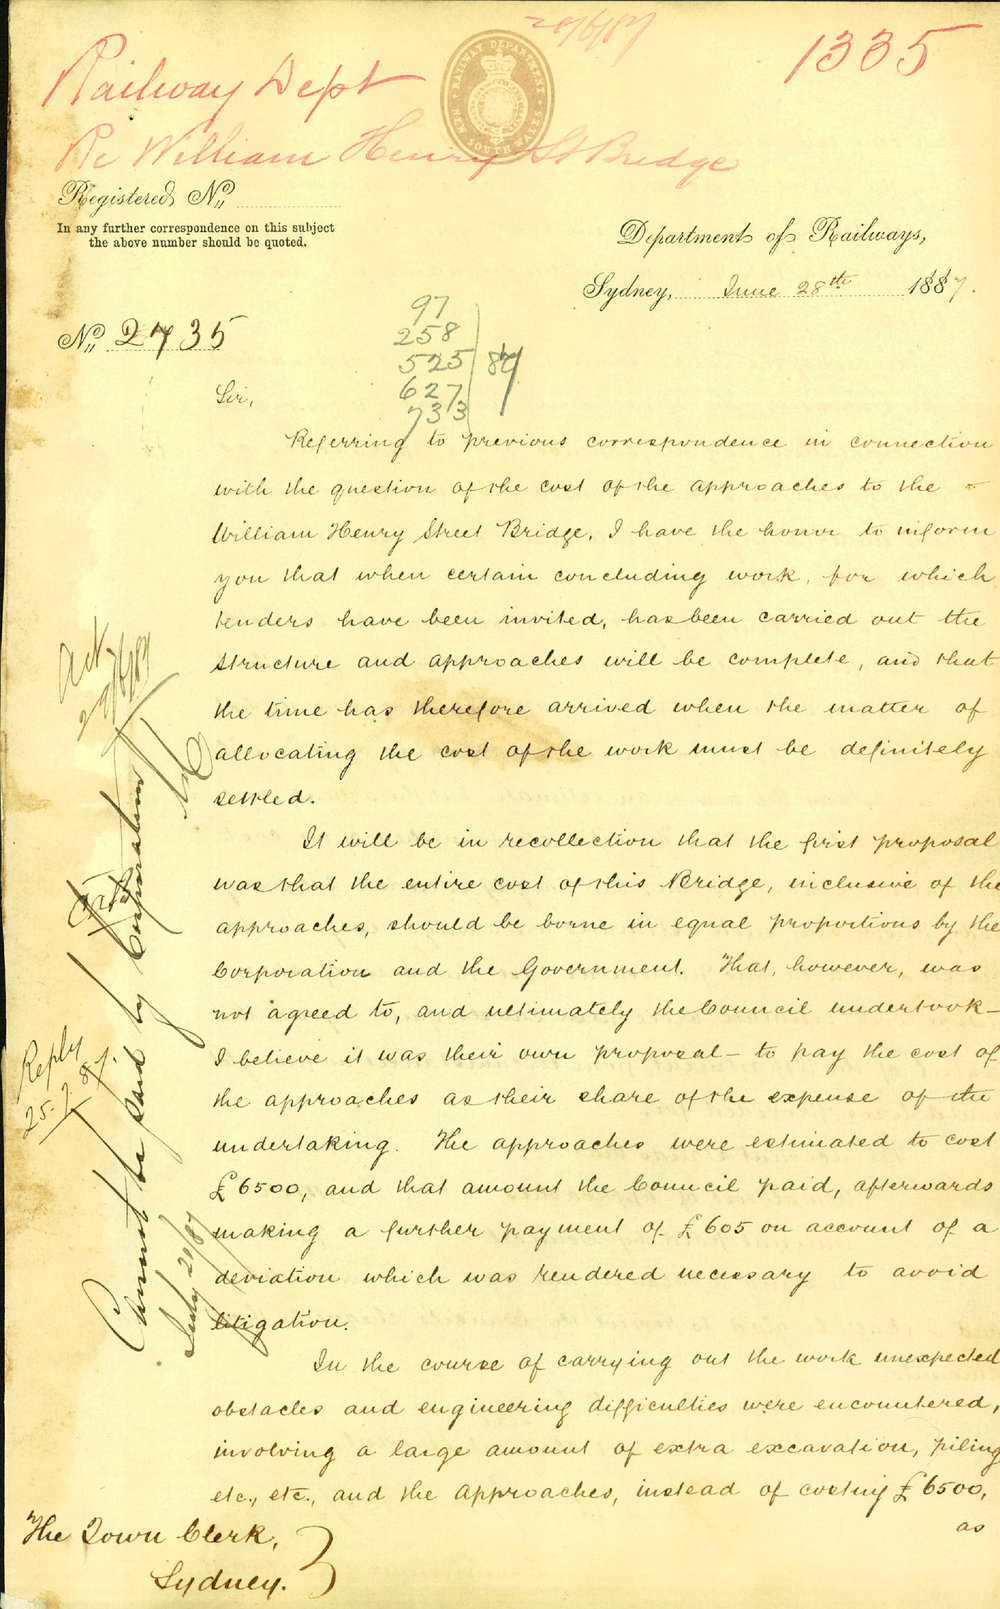 28/6/87
1335
Railway Dept
RAILWAY DEPARTMENT
NEW SOUTH WALES
Re William Henry St Bridge
Registered No.
In any further correspondence on this subject
the above number should be quoted.
Department of Railways,
Sydney, June 28th 1887.
No. 2735
97
258
525
627
733
87
Sir,
Referring to previous correspondence in connection
with the question of the cost of the approaches to the
William Henry Street Bridge, I have the honor to inform
you that when certain concluding work, for which
tenders have been invited, has been carried out the
structure and approaches will be complete, and that
the time has therefore arrived when the matter of
allocating the cost of the work must be definitely
settled.
It will be in recollection that the first proposal
was that the entire cost of this Bridge, inclusive of the
approaches, should be borne in equal proportions by the
Corporation and the Government. That, however, was
not agreed to, and ultimately the Council undertook—
I believe it was their own proposal— to pay the cost of
the approaches as their share of the expense of the
undertaking. The approaches were estimated to cost
£6500, and that amount the Council paid, afterwards
making a further payment of £605 on account of a
deviation which was rendered necessary to avoid
litigation.
In the course of carrying out the work unexpected
obstacles and engineering difficulties were encountered,
involving a large amount of extra excavation, piling
etc., etc., and the approaches, instead of costing £6500,
as
The Town Clerk,
Sydney.
Ack
29/6/87
Cannot be paid by Corporation
July 21/87
Reply
25.7.87.